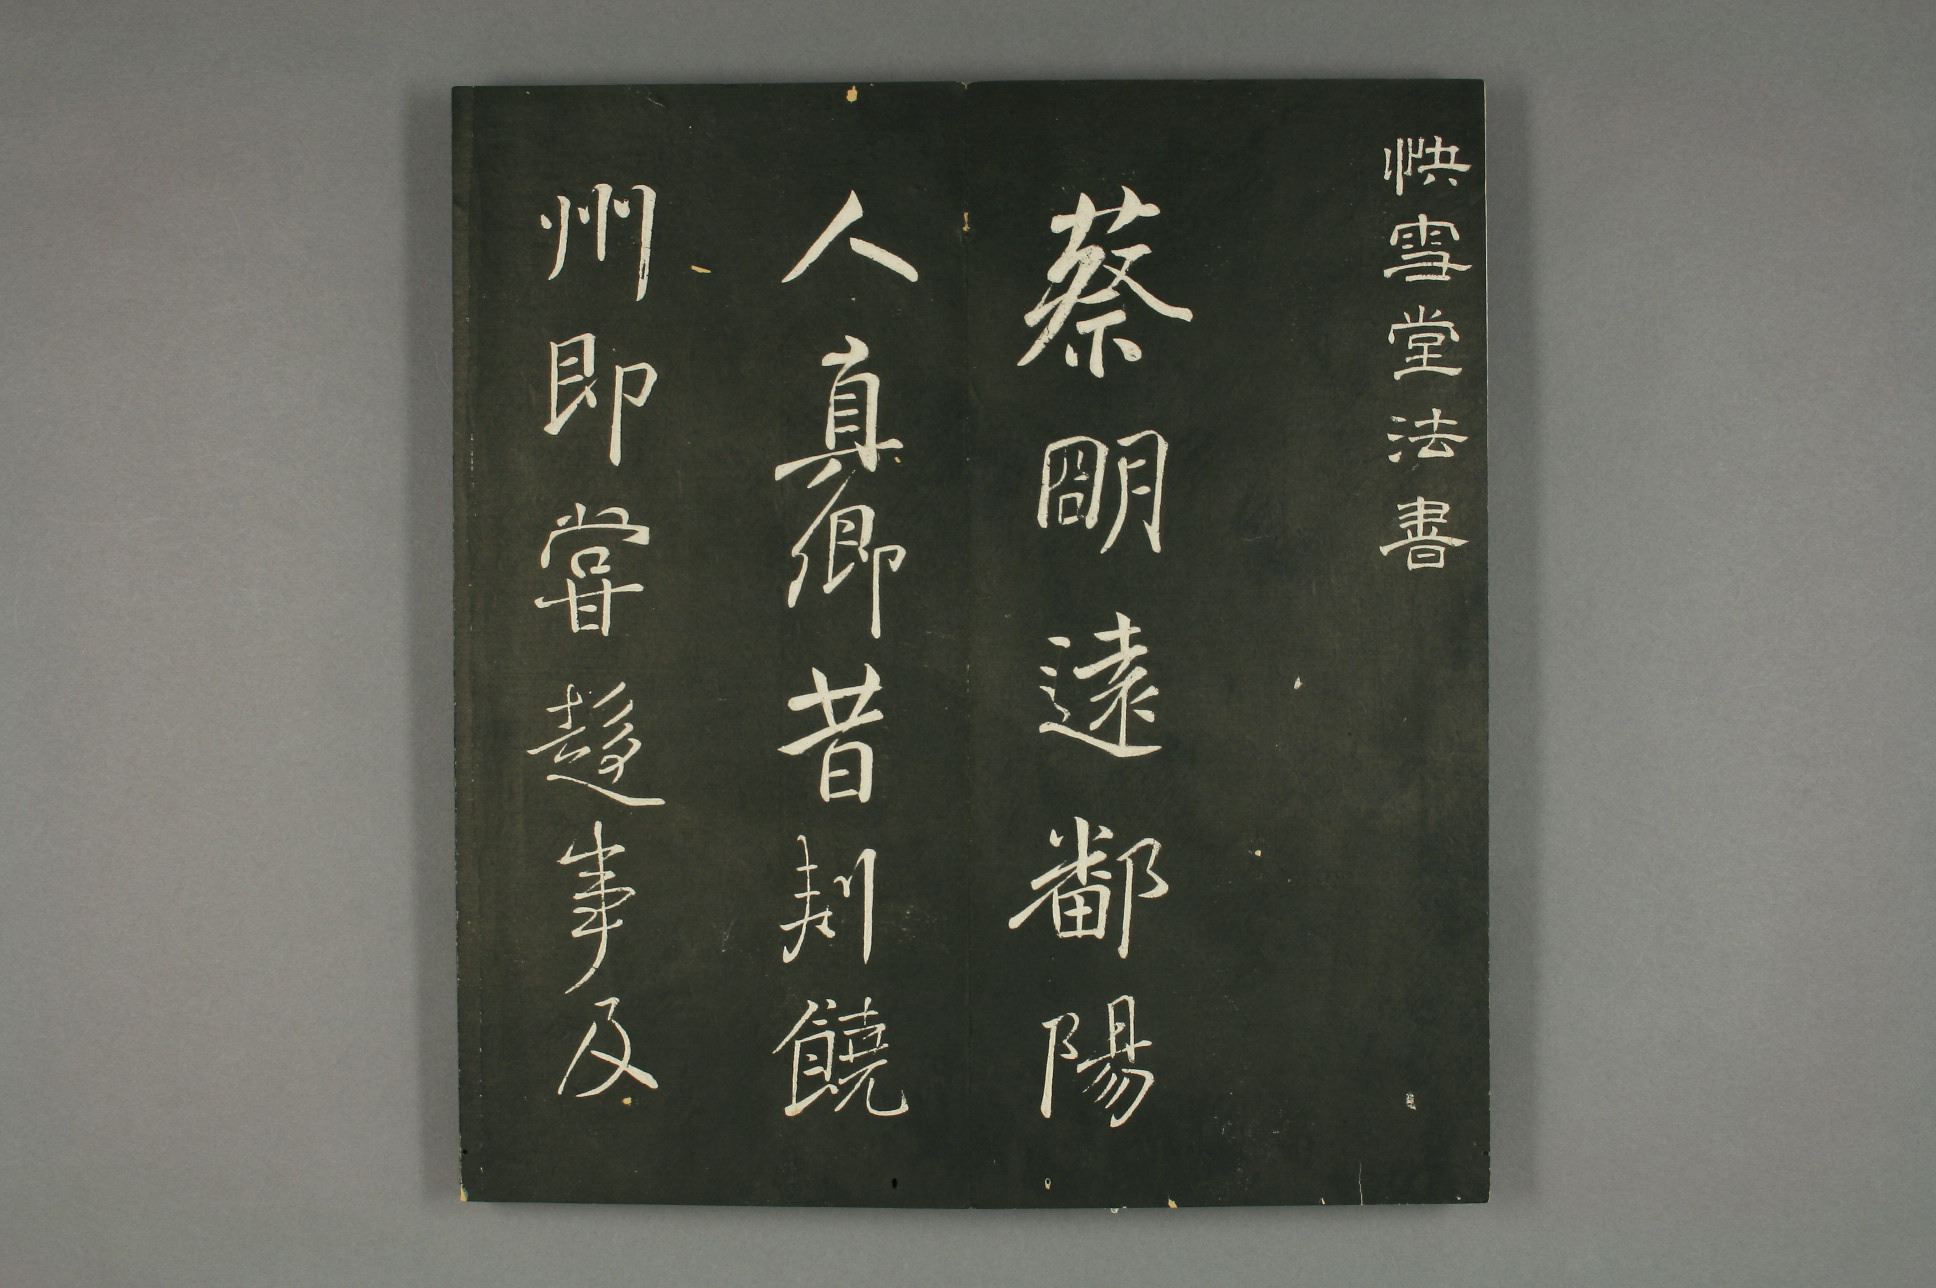 快雪堂法書
蔡明遠鄱陽
人真卿昔刾饒
州即甞趍事及